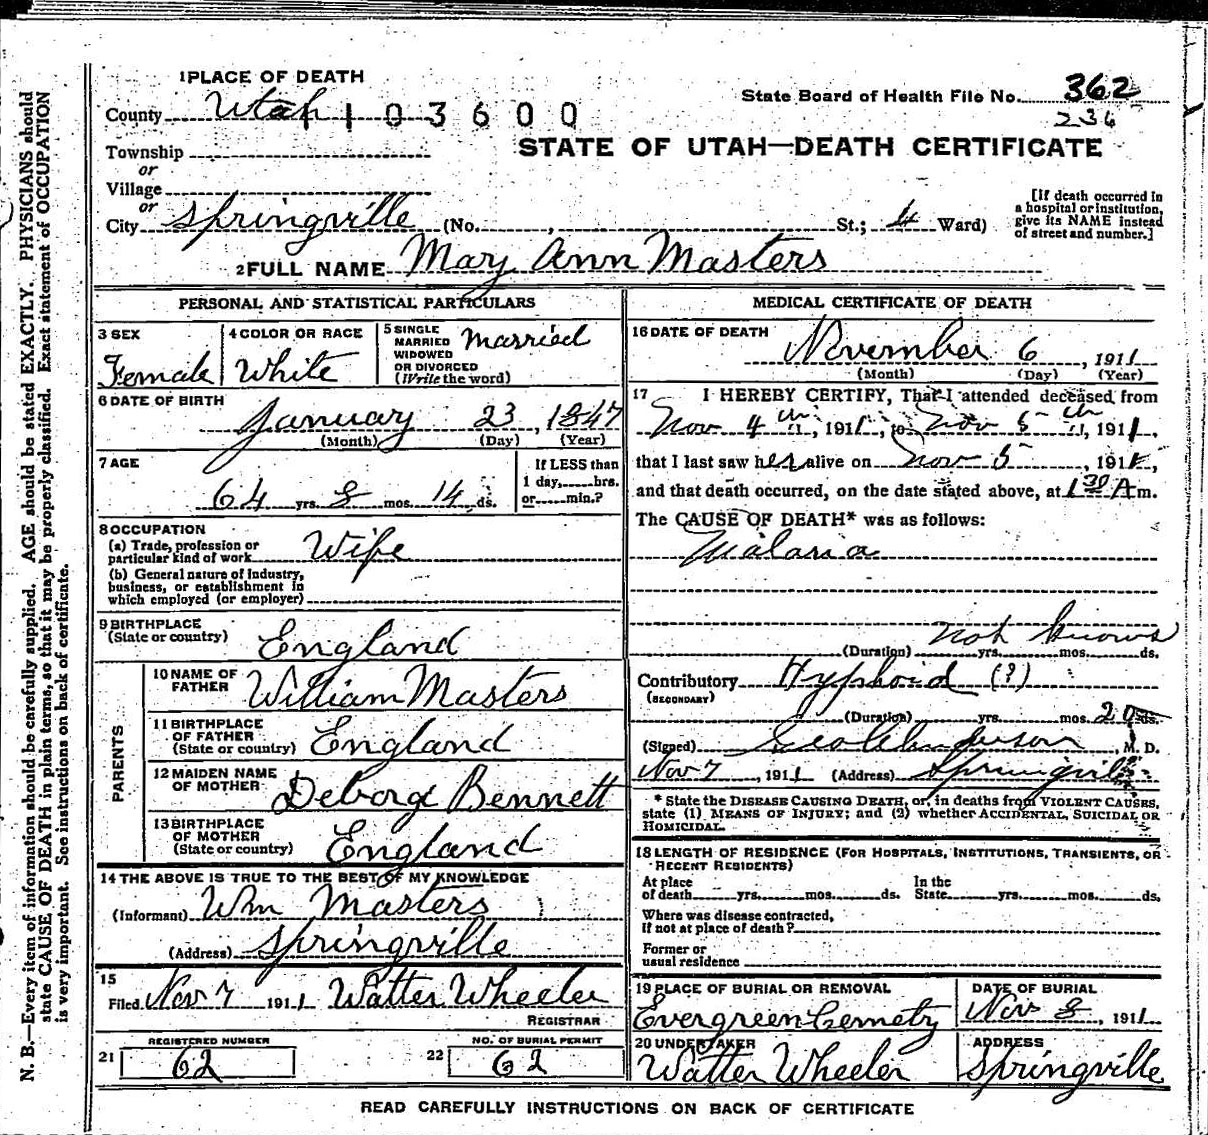 1 PLACE OF DEATH
County Utah 1 1 0 3 6 0 0
State Board of Health File No. 362
236
Township
or
Village
or
City Springville (No. , St.; 4 Ward)
STATE OF UTAH—DEATH CERTIFICATE
[If death occurred in
a hospital or institution,
give its NAME instead
of street and number.]
2 FULL NAME Mary Ann Masters
PERSONAL AND STATISTICAL PARTICULARS
3 SEX
Female
4 COLOR OR RACE
White
5 SINGLE
MARRIED
WIDOWED
OR DIVORCED
(Write the word)
Married
6 DATE OF BIRTH
January 23, 1847
(Month) (Day) (Year)
7 AGE
64 yrs. 8 mos. 14 ds.
If LESS than
1 day, hrs.
or min.?
8 OCCUPATION
(a) Trade, profession or
particular kind of work Wife
(b) General nature of industry,
business, or establishment in
which employed (or employer)
9 BIRTHPLACE
(State or country) England
PARENTS
10 NAME OF
FATHER William Masters
11 BIRTHPLACE
OF FATHER
(State or country) England
12 MAIDEN NAME
OF MOTHER Bennett
13 BIRTHPLACE
OF MOTHER
(State or country) England
14 THE ABOVE IS TRUE TO THE BEST OF MY KNOWLEDGE
(Informant) Wm Masters
(Address) Springville
15
Filed Nov 7 1911 Walter Wheeler
REGISTRAR
REGISTERED NUMBER
21 62
NO. OF BURIAL PERMIT
22 62
MEDICAL CERTIFICATE OF DEATH
16 DATE OF DEATH
November 6, 1911
(Month) (Day) (Year)
17 I HEREBY CERTIFY, That I attended deceased from
Nov 4th, 1911, to Nov 5th, 1911,
that I last saw her alive on Nov 5, 1911,
and that death occurred, on the date stated above, at 1 30 A m.
The CAUSE OF DEATH* was as follows:
Malaria
not known
(Duration) yrs. mos. ds.
Contributory Typhoid (?)
(SECONDARY)
(Duration) yrs. mos. 20 ds.
(Signed) Geo Anderson, M. D.
Nov 7, 1911 (Address) Springville
* State the DISEASE CAUSING DEATH, or, in deaths from VIOLENT CAUSES,
state (1) MEANS OF INJURY; and (2) whether ACCIDENTAL, SUICIDAL OR
HOMICIDAL.
18 LENGTH OF RESIDENCE (FOR HOSPITALS, INSTITUTIONS, TRANSIENTS, OR
RECENT RESIDENTS)
At place
of death yrs. mos. ds.
In the
State yrs. mos. ds.
Where was disease contracted,
if not at place of death?
Former or
usual residence
19 PLACE OF BURIAL OR REMOVAL
Evergreen Cemety
DATE OF BURIAL
Nov 8, 1911
20 UNDERTAKER
Walter Wheeler
ADDRESS
Springville
READ CAREFULLY INSTRUCTIONS ON BACK OF CERTIFICATE
N. B.—Every item of information should be carefully supplied. AGE should be stated EXACTLY. PHYSICIANS should
state CAUSE OF DEATH in plain terms, so that it may be properly classified. Exact statement of OCCUPATION
is very important. See instructions on back of certificate.